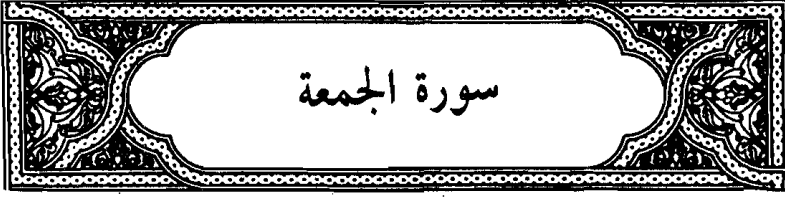 سورة الجمعة